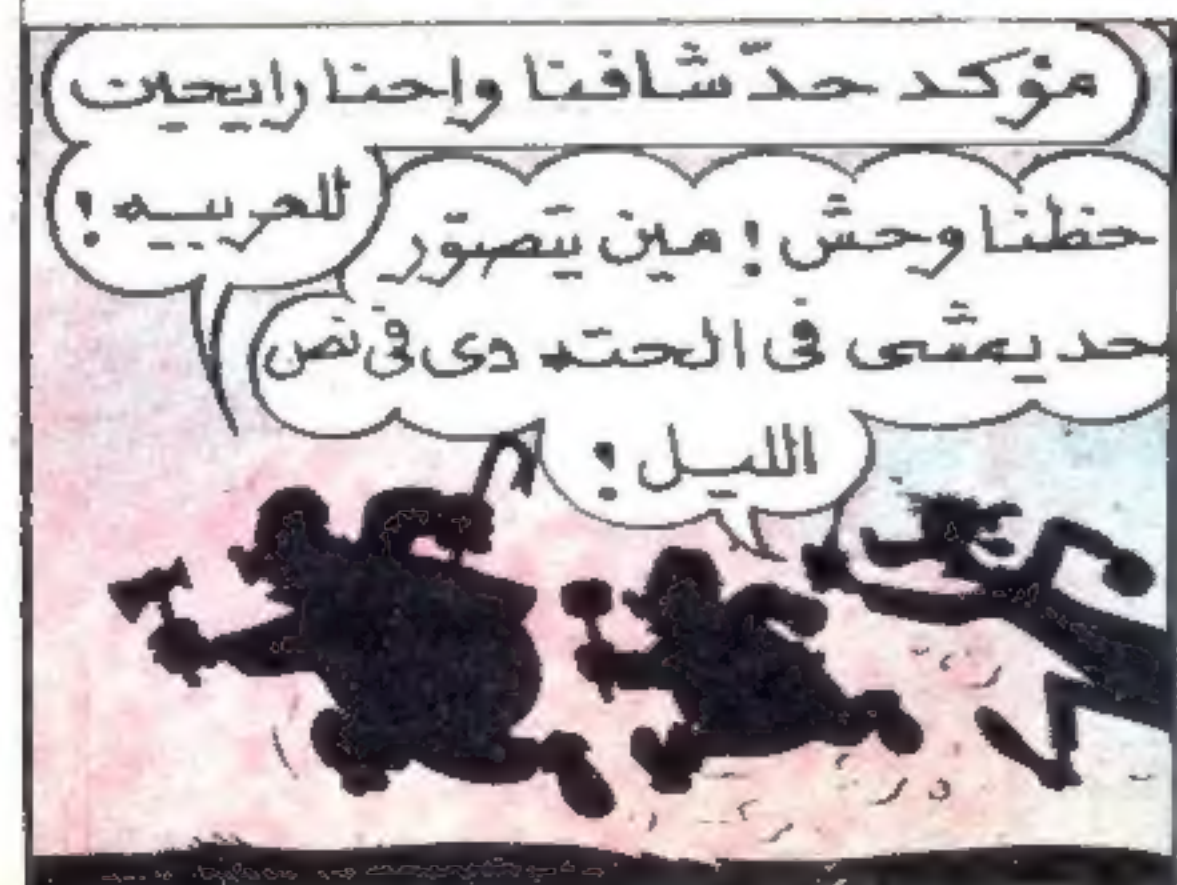 مؤكد حدّ شافنا واحنا رايحين
للعربيه!
حظنا وحش! مين يتصوّر
حد يمشى فى الحته دى فى نص
الليل!